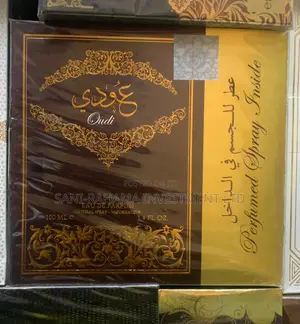 عودي
Oudi
EAU DE PARFUM
NATURAL SPRAY - VAPORISATEUR
100 ML ℮ 3.4 FL.OZ.
عطر للجسم في الداخل
Perfumed Spray Inside